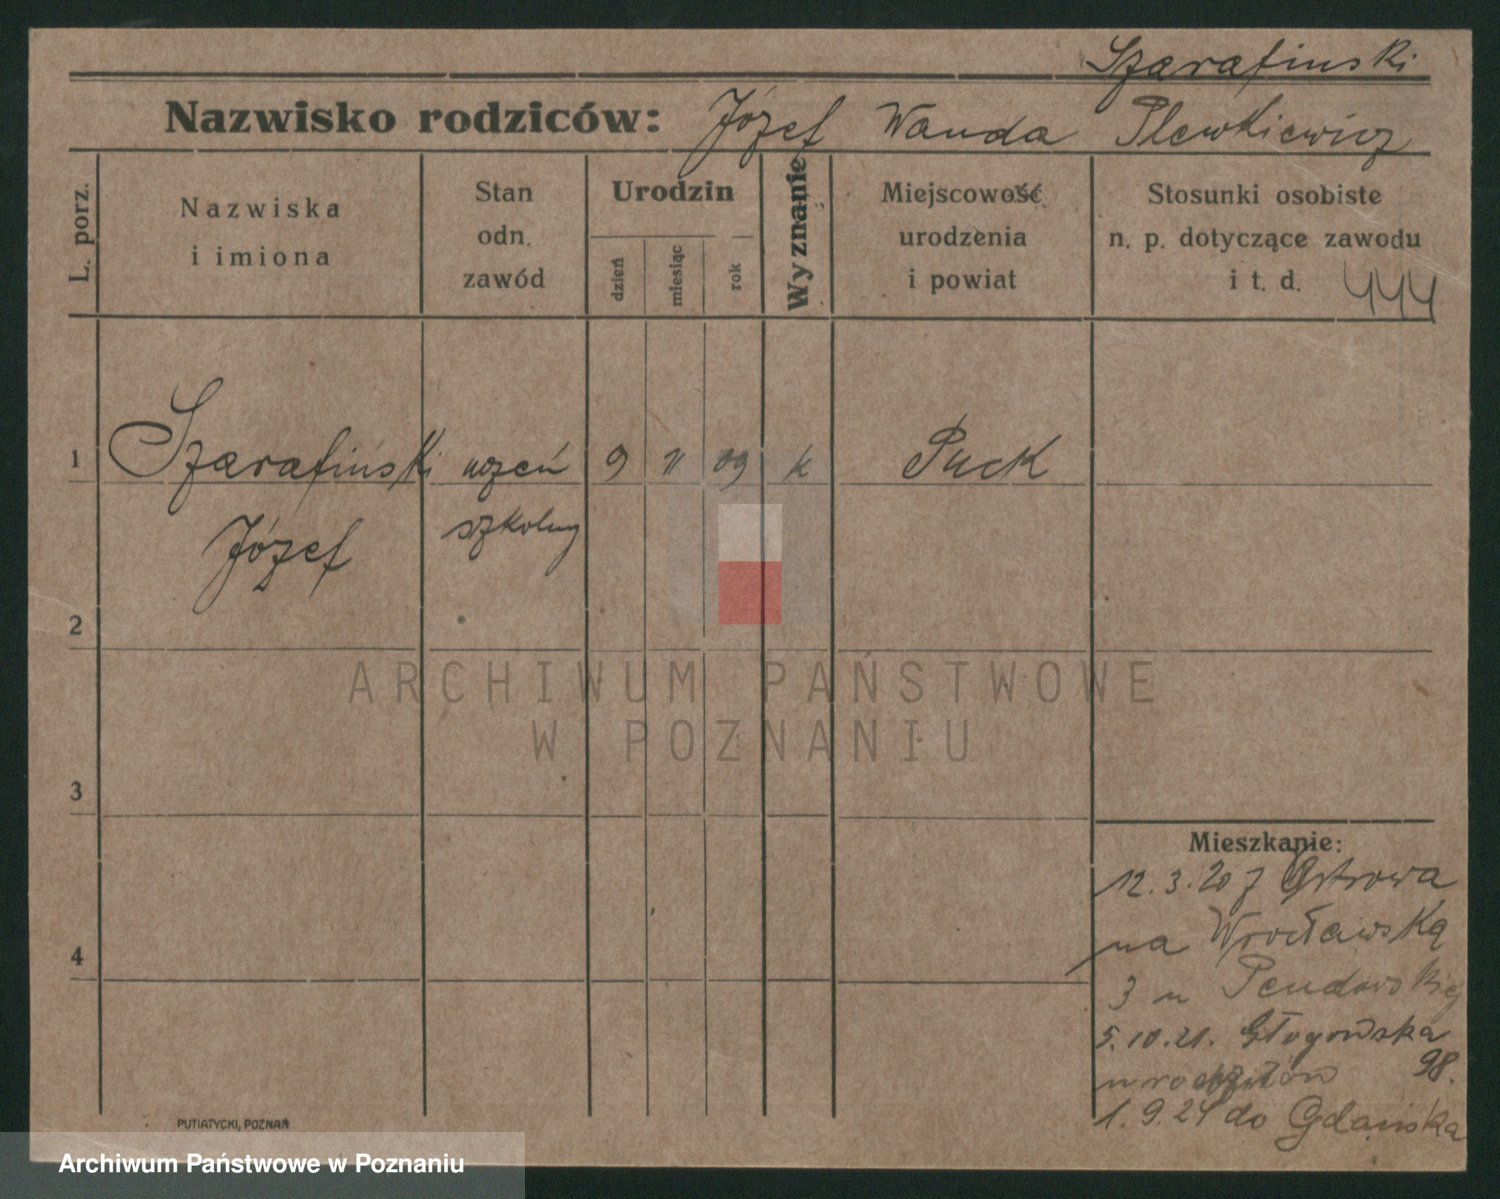 Szarafinski
Nazwisko rodziców: Józef Wanda Plewkiewicz
L. porz.
Nazwiska
i imiona
Stan
odn.
zawód
Urodzin
dzień
miesiąc
rok
Wyznanie
Miejscowość
urodzenia
i powiat
Stosunki osobiste
n. p. dotyczące zawodu
i t. d. 444
1 Szarafiński uczeń 9 V 09 k Puck
Józef szkolny
2
ARCHIWUM PAŃSTWOWE
W POZNANIU
3
Mieszkanie:
12.3.20 z Ostrowa
na Wrocławską
3 u
4
5.10.21. Głogowska
98.
1.9.24 do Gdańska
PUTIATYCKI, POZNAŃ
Archiwum Państwowe w Poznaniu